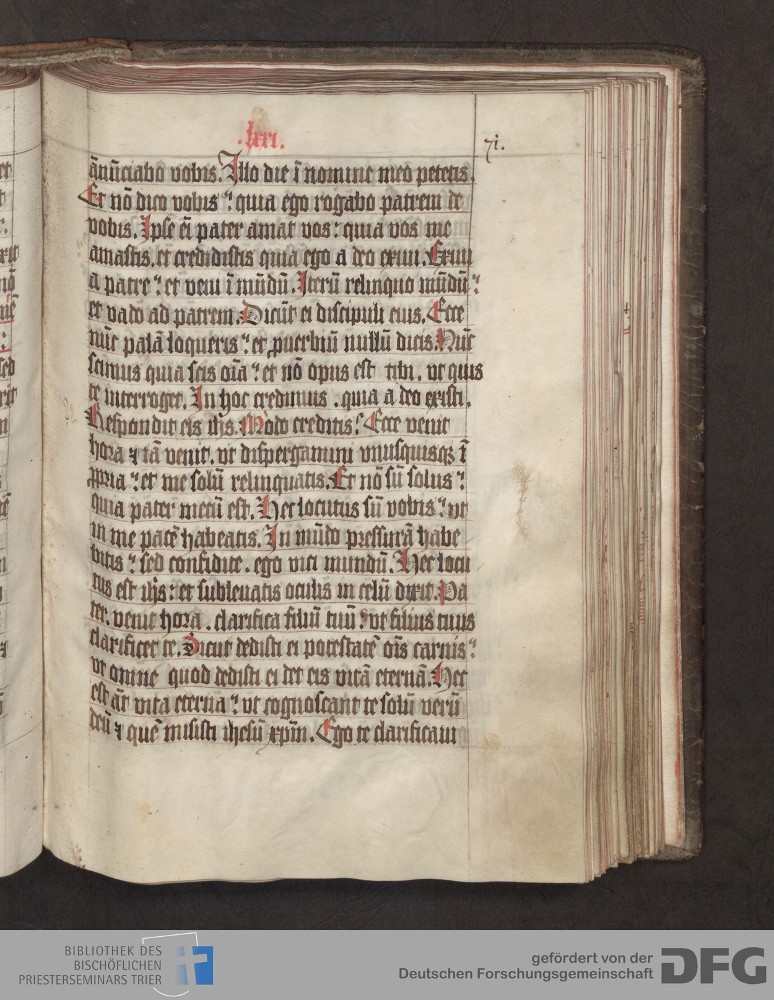 .lxxi.
71.
ānūciabo vobis. Illo die ī nomine meo petetis.
Et nō dico vobis : quia ego rogabo patrem de
vobis. Ipse eī pater amat vos : quia vos me
amastis. et credidistis quia ego a deo exiui. Exiui
a patre : et veni ī mūdū. Iterū relinquo mūdū :
et vado ad patrem. Dicūt ei discipuli eius. Ecce
nūc palā loqueris : et ꝓuerbiū nullū dicis. Nūc
scimus quia scis oīa : et nō opus est tibi. vt quis
te interroget. In hoc credimus . quia a deo existi.
Respondit eis ihs. Modo creditis? Ecce venit
hora ⁊ iā venit. vt dispergamini vnusquisqꝫ ī
ꝓpria : et me solū relinquatis. Et nō sū solus :
quia pater mecū est. Hec locutus sū vobis : vt
in me pacē habeatis. In mūdo pressurā habe
bitis : sed confidite . ego vici mundū. Hec locu
tus est ihs : et subleuatis oculis in celū dixit. Pa
ter. venit hora . clarifica filiū tuū : vt filius tuus
clarificet te. Sicut dedisti ei potestatē oīs carnis :
vt omne quod dedisti ei det eis vitā eternā. Hec
est āt vita eterna : vt cognoscant te solū verū
deū ⁊ quē misisti ihesū xpm̄. Ego te clarificaui
BIBLIOTHEK DES
BISCHÖFLICHEN
PRIESTERSEMINARS TRIER
gefördert von der
Deutschen Forschungsgemeinschaft
DFG